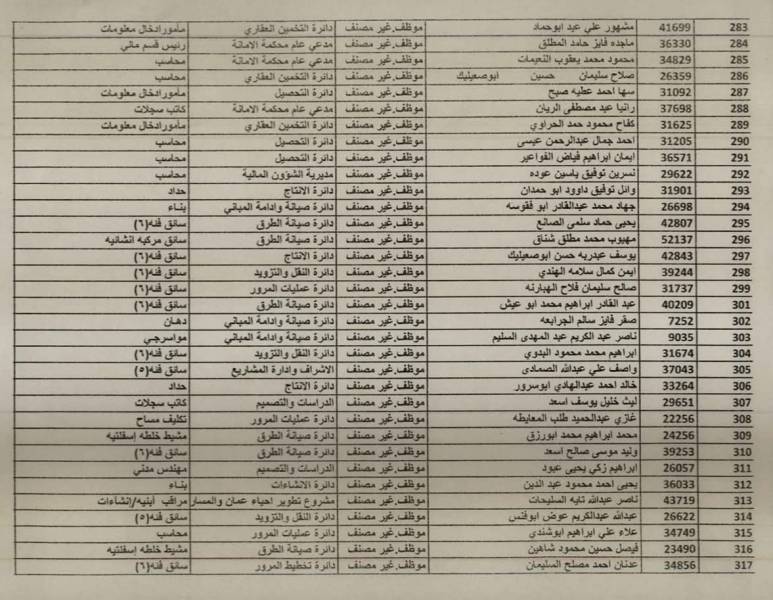 283 41699 مشهور علي عبد ابوحماد موظف.غير مصنف دائرة التخمين العقاري مأمور ادخال معلومات
284 36330 ماجده فايز حامد المطلق موظف.غير مصنف مدعي عام محكمة الامانة رئيس قسم مالي
285 34829 محمود محمد يعقوب النعيمات موظف.غير مصنف مدعي عام محكمة الامانة محاسب
286 26359 صلاح سليمان حسين ابوصعيليك موظف.غير مصنف دائرة التخمين العقاري محاسب
287 31092 سها احمد عطيه صبح موظف.غير مصنف دائرة التحصيل مأمور ادخال معلومات
288 37698 رانيا عبد مصطفى الريان موظف.غير مصنف مدعي عام محكمة الامانة كاتب سجلات
289 31625 كفاح محمود حمد الحراوي موظف.غير مصنف دائرة التخمين العقاري مأمور ادخال معلومات
290 31205 احمد جمال عبدالرحمن عيسى موظف.غير مصنف دائرة التحصيل محاسب
291 36571 ايمان ابراهيم فياض الفواعير موظف.غير مصنف دائرة التحصيل محاسب
292 29622 نسرين توفيق ياسين عوده موظف.غير مصنف مديرية الشؤون المالية محاسب
293 31901 وائل توفيق داوود ابو حمدان موظف.غير مصنف دائرة الانتاج حداد
294 26698 جهاد محمد عبدالقادر ابو فقوسه موظف.غير مصنف دائرة صيانة وادامة المباني بناء
295 42807 يحيى حماد سلمى الصانع موظف.غير مصنف دائرة صيانة الطرق سائق فئه(٦)
296 52137 مهيوب محمد مطلق شناق موظف.غير مصنف دائرة صيانة الطرق سائق مركبه انشائيه
297 42843 يوسف عبدربه حسن ابوصعيليك موظف.غير مصنف دائرة الانتاج سائق فئه(٦)
298 39244 ايمن كمال سلامه الهندي موظف.غير مصنف دائرة النقل والتزويد سائق فئه(٦)
299 31737 صالح سليمان فلاح الهبارنه موظف.غير مصنف دائرة عمليات المرور سائق فئه(٦)
301 40209 عبد القادر ابراهيم محمد ابو عيش موظف.غير مصنف دائرة صيانة الطرق سائق فئه(٦)
302 7252 صقر فايز سالم الجرابعه موظف.غير مصنف دائرة صيانة وادامة المباني دهان
303 9035 ناصر عبد الكريم عبد المهدى السليم موظف.غير مصنف دائرة صيانة وادامة المباني مواسرجي
304 31674 ابراهيم محمد محمود البدوي موظف.غير مصنف دائرة النقل والتزويد سائق فئه(٦)
305 37043 واصف علي عبدالله الصمادى موظف.غير مصنف الاشراف وادارة المشاريع سائق فئه(٥)
306 33264 خالد احمد عبدالهادي ابوسرور موظف.غير مصنف دائرة الانتاج حداد
307 29651 ليث خليل يوسف اسعد موظف.غير مصنف الدراسات والتصميم كاتب سجلات
308 22256 غازي عبدالحميد طلب المعايطه موظف.غير مصنف دائرة عمليات المرور تكليف مساح
309 24256 محمد ابراهيم محمد ابورزق موظف.غير مصنف دائرة صيانة الطرق مشيط خلطه إسفلتيه
310 39253 وليد موسى صالح اسعد موظف.غير مصنف دائرة صيانة الطرق سائق فئه(٦)
311 26057 ابراهيم زكي يحيى عبود موظف.غير مصنف الدراسات والتصميم مهندس مدني
312 36033 يحيى احمد محمود عبد الدين موظف.غير مصنف دائرة الانشاءات بناء
313 43719 ناصر عبدالله تايه السليحات موظف.غير مصنف مشروع تطوير احياء عمان والمسار مراقب أبنيه/إنشاءات
314 26622 عبدالله عبدالكريم عوض ابوفنس موظف.غير مصنف دائرة النقل والتزويد سائق فئه(٥)
315 34749 علاء علي ابراهيم ابوشندي موظف.غير مصنف دائرة عمليات المرور محاسب
316 23490 فيصل حسين محمود شاهين موظف.غير مصنف دائرة صيانة الطرق مشيط خلطه إسفلتيه
317 34856 عدنان احمد مصلح السليمان موظف.غير مصنف دائرة تخطيط المرور سائق فئه(٦)